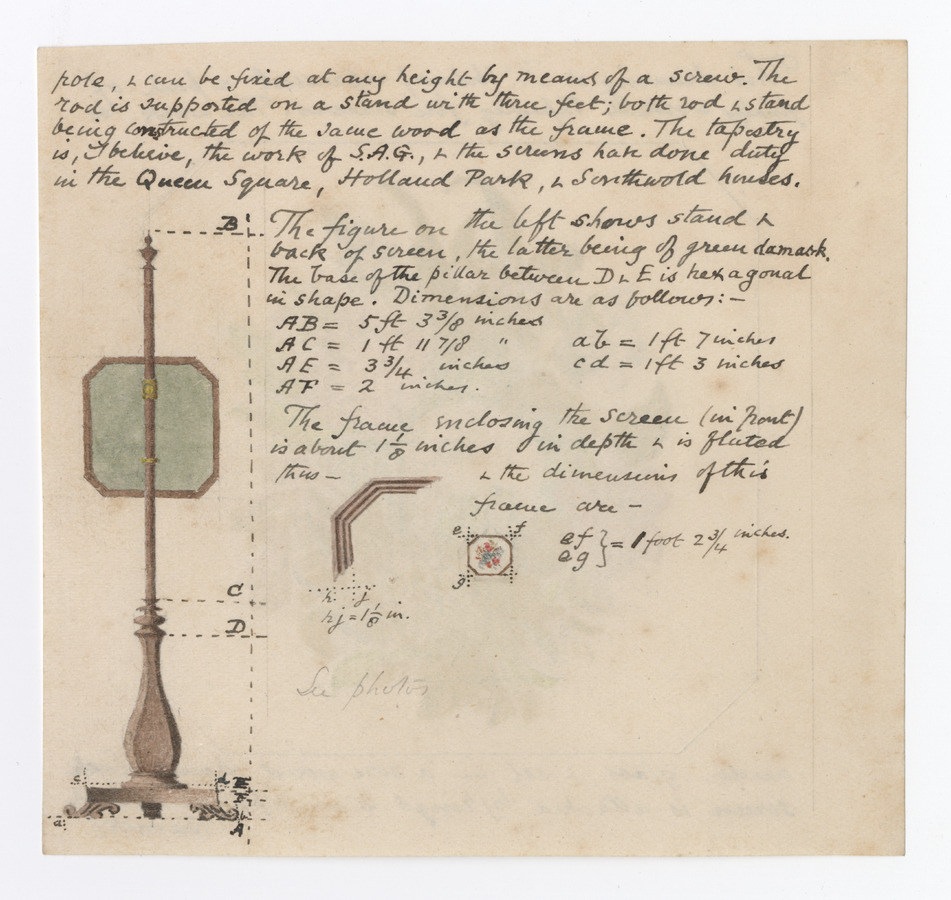 pole, & can be fixed at any height by means of a screw. The
rod is supported on a stand with three feet; both rod & stand
being constructed of the same wood as the frame. The tapestry
is, I believe, the work of S.A.G., & the screens have done duty
in the Queen Square, Holland Park, & Southwold houses.
B
The figure on the left shows stand &
back of screen, the latter being of green damask.
The base of the pillar between D & E is hexagonal
in shape. Dimensions are as follows:—
AB = 5 ft 3 3/8 inches
AC = 1 ft 11 7/8 "
ab = 1 ft 7 inches
AE = 3 3/4 inches
cd = 1 ft 3 inches
AF = 2 inches.
The frame enclosing the screen (in front)
is about 1 1/8 inches in depth & is fluted
thus —
& the dimensions of this
frame are —
e f
ef } = 1 foot 2 3/4 inches.
eg
g
C
h j
hj = 1 1/8 in.
D
See photos
c d E
F
a b
A